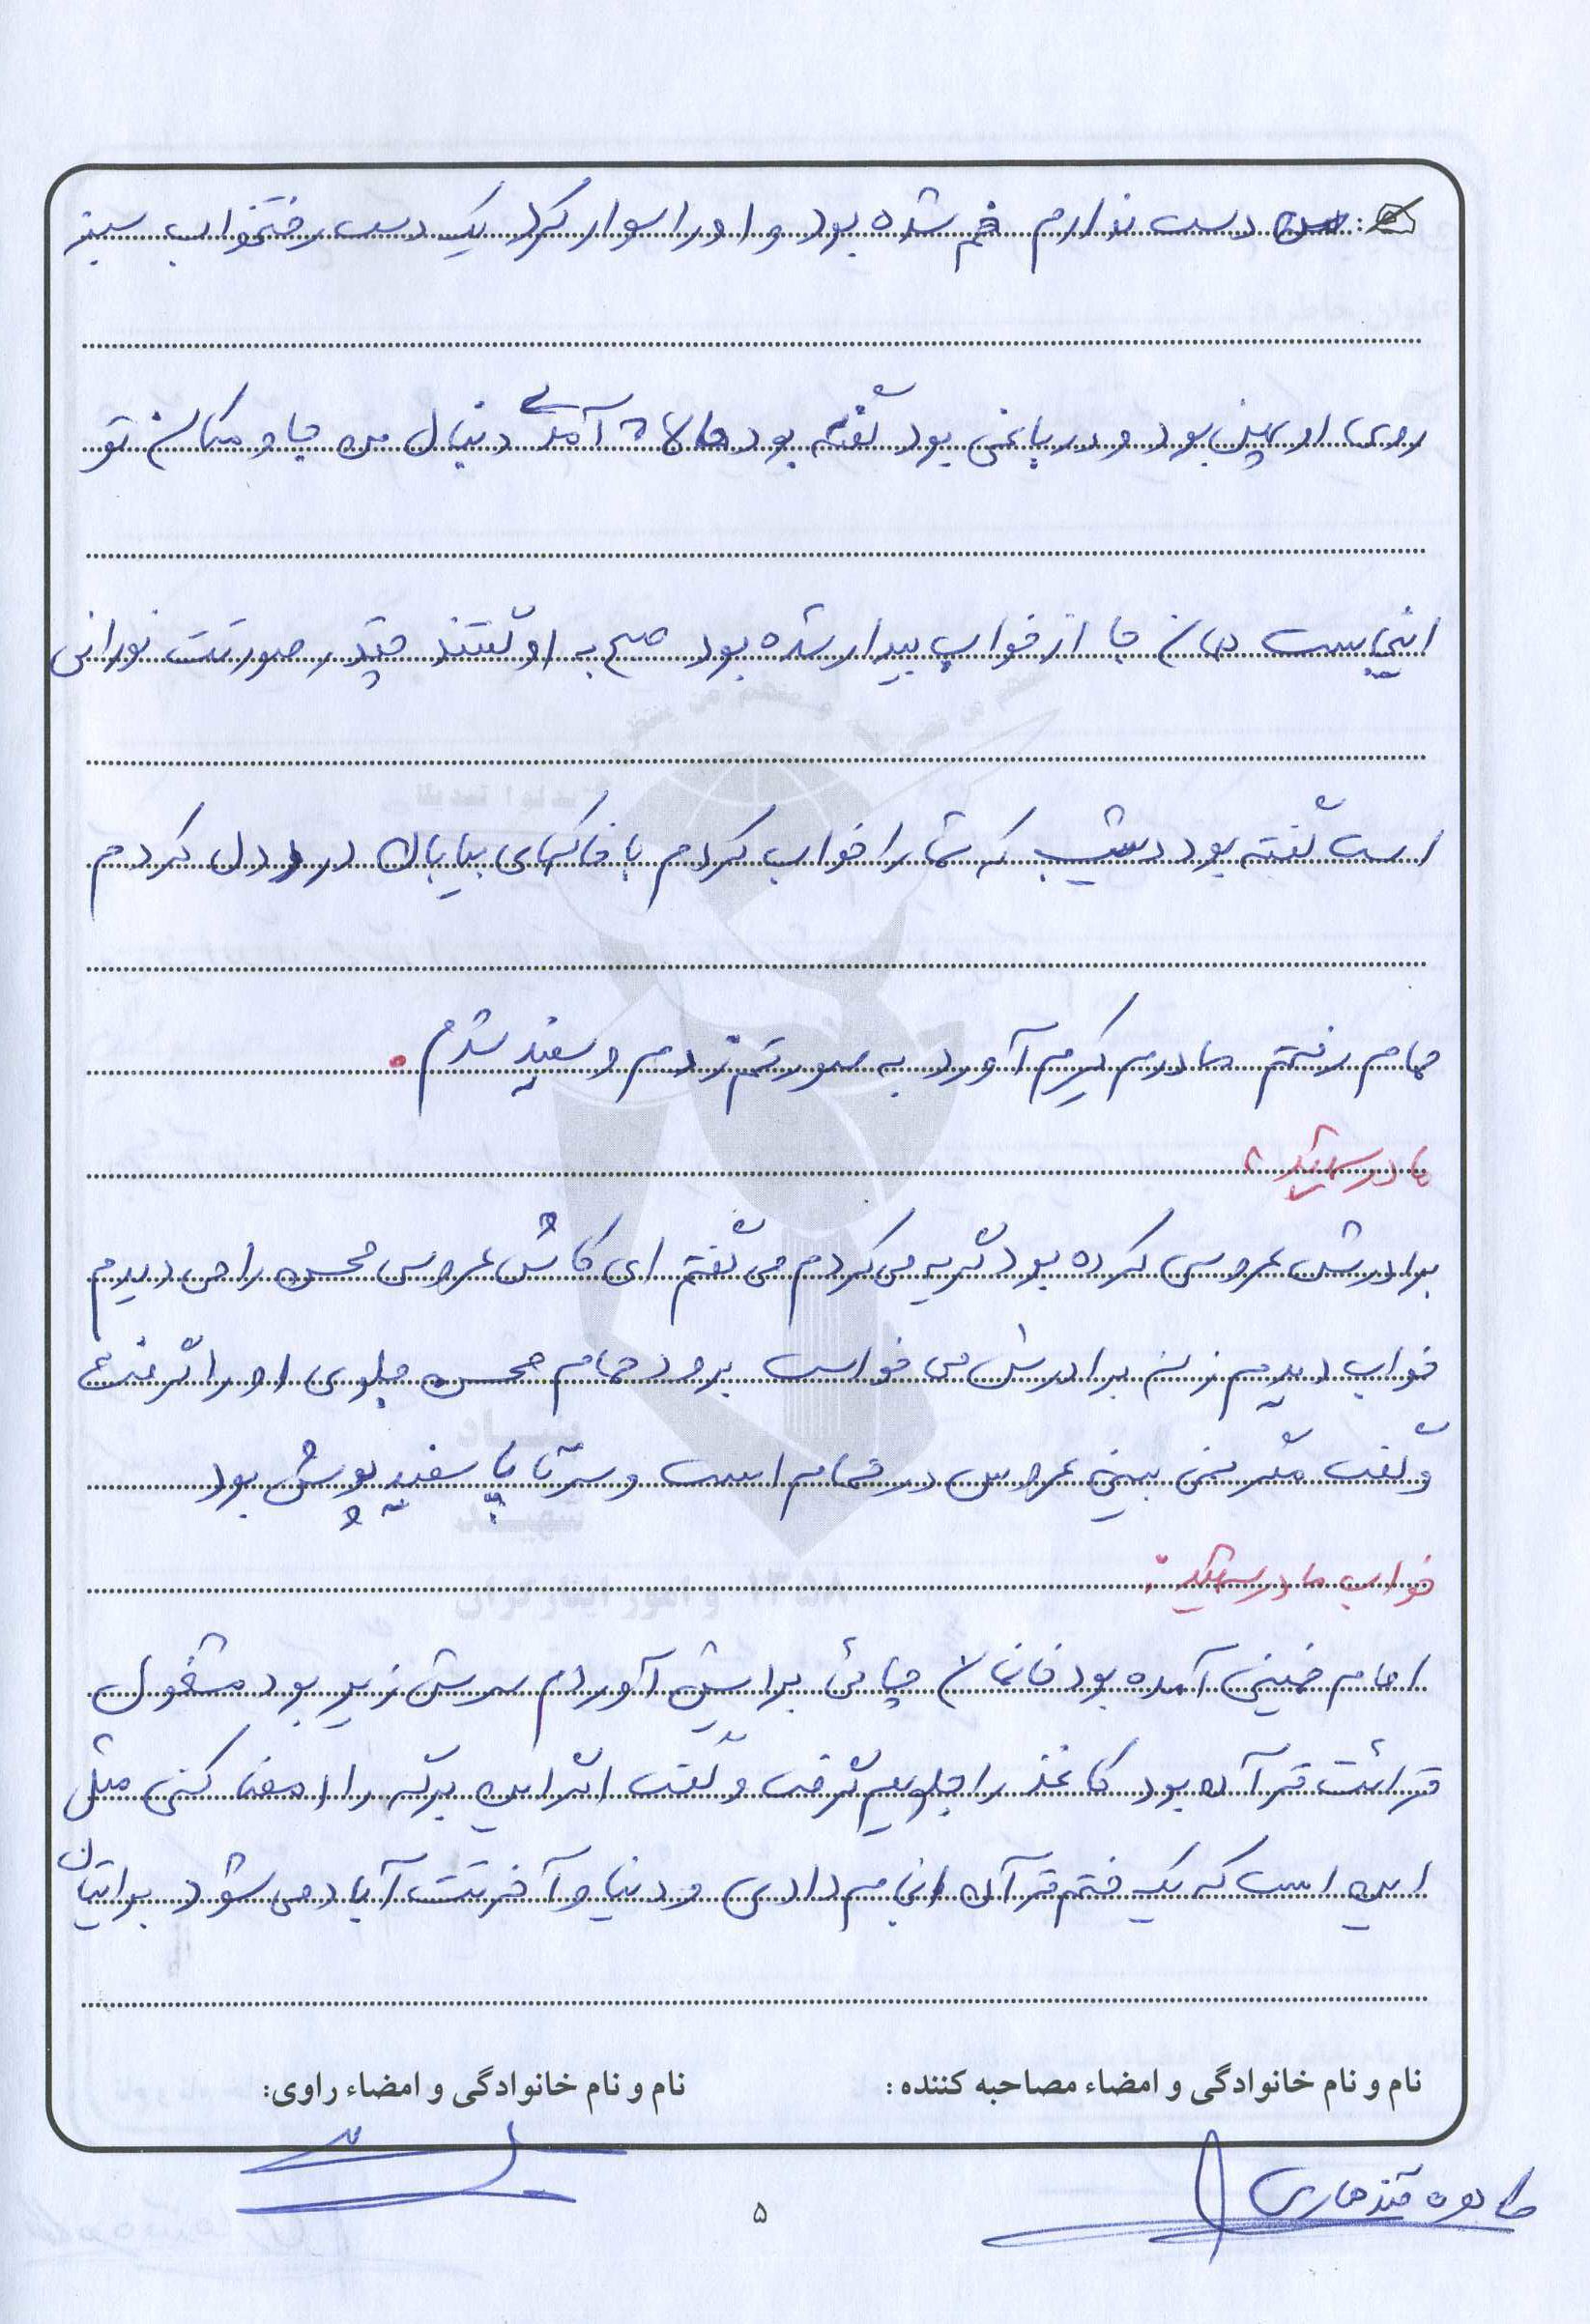 من دست ندارم خم شده بود و او را سوار کرد یک دست رختخواب سبز
روی او پهن بود و در باغی بود گفته بود حالا که آمدی دنبال من جا و مکان تو
اینجاست همان جا از خواب بیدار شده بود صبح به او گفتند چقدر صورتت نورانی
است گفته بود دیشب که شما را خواب کردم با خاکهای بیابان درد دل کردم
حمام رفتم مادرم کرم آورد به صورتم زدم و سفید شدم.
مادر شهید:
برادرش عروسی کرده بود گریه می کردم می گفتم ای کاش عروس محسن را می دیدم
خواب دیدم زن برادرش می خواست برود حمام محسن جلوی او را گرفت
و گفت مگر نمی بینی عروس در حمام است و سرتا پا سفید پوش بود
خواب مادر شهید:
امام خمینی آمده بود خانمان چائی برایش آوردم سرش زیر بود مشغول
قرائت قرآن بود کاغذ را جلویم گرفت و گفت اگر این برگه را امضا کنی مثل
این است که یک ختم قرآن انجام دادی و دنیا و آخرتت آباد می شود برایتان
نام و نام خانوادگی و امضاء مصاحبه کننده:
نام و نام خانوادگی و امضاء راوی:
طاهره قندهاری
۵
بنیاد
شهید
و امور ایثارگران
۱۳۵۸